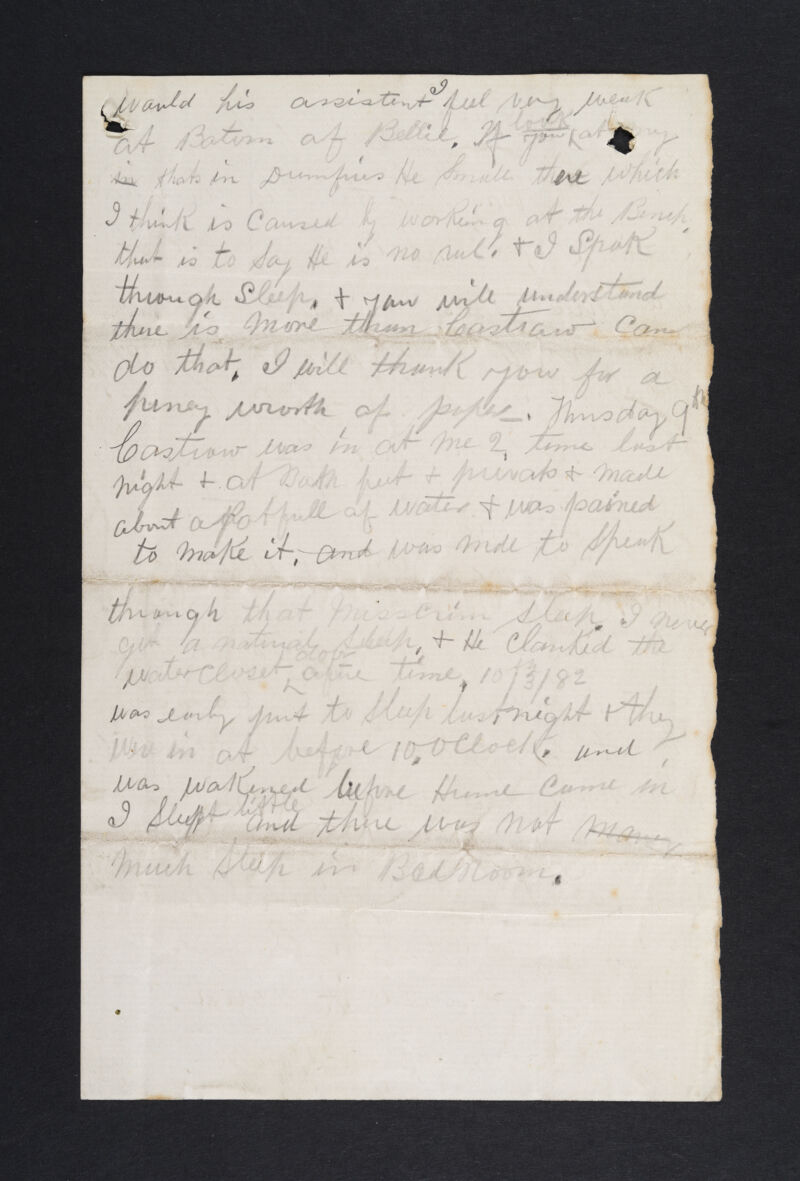 would his assistent I feel very weak
at Botom of Bellie. If you look at any
in thats in Dumfries He Smalls there which
I think is Caused by working at the Bench,
that is to Say He is no rul. + I Spok
through Sleep. + you will understand
there is More than Castraw Can
do that. I will thank you for a
peney worth of paper. Thusday 9th
Castraw was in at me 2 time last
night + at Both feet + privats + made
about a Potfull of water + was pained
to make it. and was made to Speak
through that Sleep. I never
got a natural Sleep, + He Clanked the
watercloset door time, 10/3/82
was early put to Sleep last night + they
wer in at before 10, OClock. and
was wakened before Hume Came in
I Slept little and there was not many
much Sleep in BedRoom.